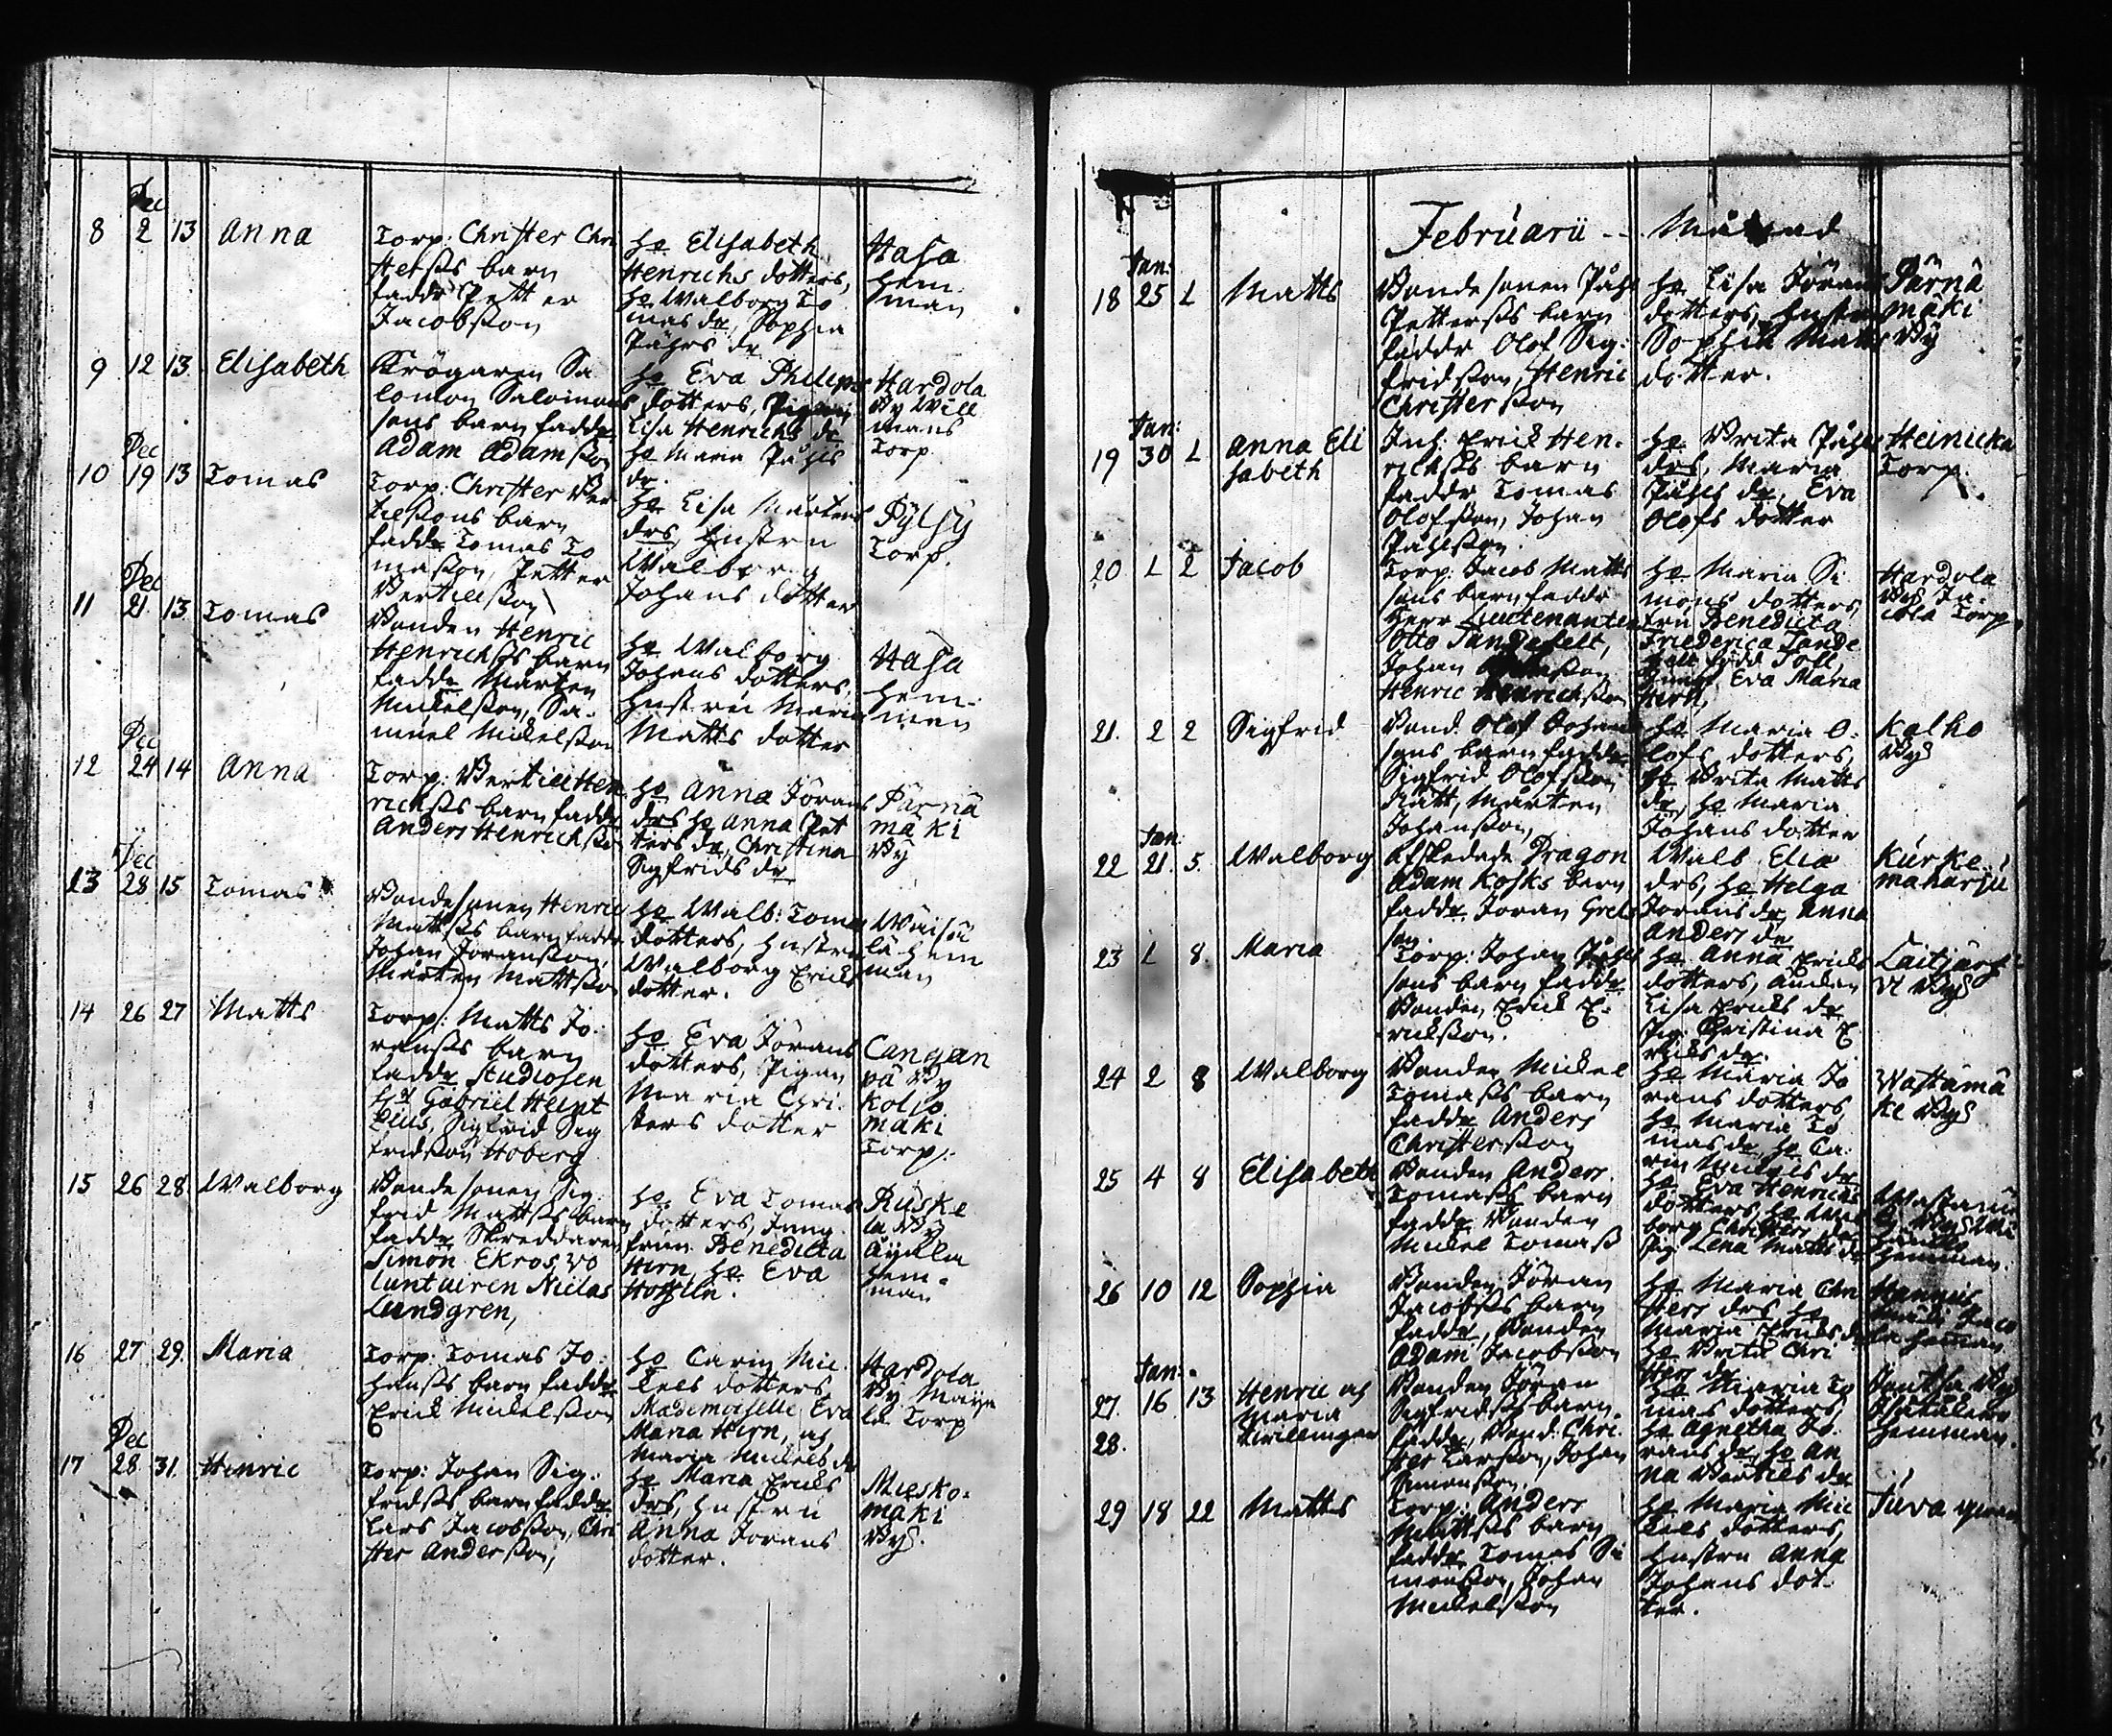 Dec
8 2 13 Anna
Torp: Christer Chri
sterßs barn
faddr Petter
Jacobßon
he Elisabeth
Henrichs dotters,
he Walborg To
mas dr, Sophia
Påhls dr
Hasa
hem
man
9 12 13 Elisabeth
Krögaren Sa
lomon Salomons
sons barn faddr
Adam Adamßon
he Eva Philips
dotters, Pigan
Lisa Henrichs dr
he Maria Påhls
dr.
Hardola
By Will
mans
Torp
Dec
10 19 13 Tomas
Torp: Christer Ber
tilßons barn
faddr Tomas To
maßon, Petter
Bertillßon
he Lisa Mårtens
drs, hustru
Walborg
Johans dotter
Pylsy
Torp.
Dec
11 21 13 Tomas
Bonden Henric
Henrichßs barn
faddr Mårten
Mickelßon, Sa-
muel Mickelßon
he Walborg
Johans dotters,
hustru Maria
Matts dotter
Hasa
hem-
man
Dec
12 24 14 Anna
Torp: Bertill Hen
richßs barn faddr
Anders Henrichßon
he Anna Jörans
drs he Anna Pet
ters dr, Christina
Sigfrids dr
Pärnä
mäki
By
Dec
13 28 15 Tomas
Bondesonen Henric
Mattßs barn faddr
Johan Joranßon,
Mårten Mattßon
he Walb: Tomas
dotters, hustru
Walborg Ericks
dotter.
Wäisä
lä hem
man
14 26 27 Matts
Torp: Matts Jo-
ranßs barn
faddr Studiosen
Gabriel Heint
zius, Sigfrid Sig
fridßon Hoberg
he Eva Jörans
dotters, Pigan
Maria Chri
sters dotter
Cangan
pä By
Koljo
mäki
Torp.
15 26 28 Walborg
Bondesonen Sig
frid Mattßs barn
faddr Skreddaren
Simon Ekros, vo
luntairen Niclas
Lundgren,
he Eva Tomas
dotters, Jung
frun Benedicta
Hirn, he Eva
Ruske
la By
hem-
man
16 27 29 Maria
Torp: Tomas Jo-
hanßs barn faddr
Erick Mickelßon
he Carin Mic
kels dotters,
Mademoiselle Eva
Maria Hirn, och
Maria Mickels dr
Hardola
By
Torp
Dec
17 28 31 Henric
Torp: Johan Sig-
fridßs barn faddr
Lars Jacobßon, Chri
ster Anderßon,
he Maria Ericks
drs, hustru
Anna Jorans
dotter.
Miesko-
mäki
By.
Februarii -- Månad
Jan:
18 25 1 Matts
Bonde sonen Påhl
Petterßs barn
faddr Olof Sig-
fridßon, Henric
Christerßon
he Lisa Jörans
dotters, hustru
Sophia Matts
dotter.
Pärnä
mäki
By
Jan:
19 30 1 Anna Eli
sabeth
Inh: Erick Hen-
richßs barn
faddr Tomas
Olofßon, Johan
Påhlßon
he Brita Påhls
drs, Maria
Påhls dr, Eva
Olofs dotter
Heinicka
Torp.
20 1 2 Jacob
Torp: Jacob Matts
sons barn faddr
Herr Lieutenanten
Otto Tandefelt,
Johan
Henric Henrichßon
he Maria Si
mons dotters,
fru Benedicta
Friederica Tande
felt född Toll,
Eva Maria
Hirn,
Hardola
By Ja-
cola Torp.
21 2 2 Sigfrid
Bond. Olof Johans
sons barn faddr
Sigfrid Olofßon
Rätt, Mårten
Johanßon,
he Maria O-
lofs dotters,
he Brita Matts
dr, he Maria
Johans dotter
Kalho
By
Jan
22 21 5 Walborg
Afskedade Dragon
Adam Kosks barn
faddr Joran Grels
son.
Walb. Elia
drs, he Helga
Jorans dr Anna
Anders dr
Kurke
maharju
23 1 8 Maria
Torp: Johan Påhls
sons barn faddr
Bonden Erick E-
rickßon.
he Anna Ericks
dotters,
Lisa Ericks dr
Pig: Christina E
ricks dr.
Laitjärf
vi By
24 2 8 Walborg
Bonden Mickel
Tomaßs barn
faddr Anders
Christerßon
he Maria Jo
rans dotters
he Maria To
mas dr he Ca-
rin Mickels dr
Wastamä
ki By
25 4 8 Elisabeth
Bonden Anders
Tomaßs barn
faddr Bonden
Mickel Tomaß
he Eva Henrichs
dotters, he Wal
borg Christers dr
Pig: Lena Matts dr
hemman.
26 10 12 Sophia
Bonden Jöran
Jacobßs barn
faddr, Bonden
Adam Jacobßon
he Maria Chri
sters drs he
Maria Ericks dr
he Brita Chri
sters dr
Jaco
la hemman
Jan:
27. 16 13 Henric och
28. Maria
tvillingar
Bonden Jöran
Sigfridßs barn.
faddr, Bond: Chri-
ster Larßon, Johan
Simonßon,
he Maria To
mas dotters,
he Agnetha Jo-
rans dr, he An
na Bertils dr
hemman.
29 18 22 Matts
Torp: Anders
Mattßs barn
faddr Tomas Si
monßon, Johan
Mickelßon
he Maria Mic
kels dotters,
hustru Anna
Johans dot-
ter.
Juva